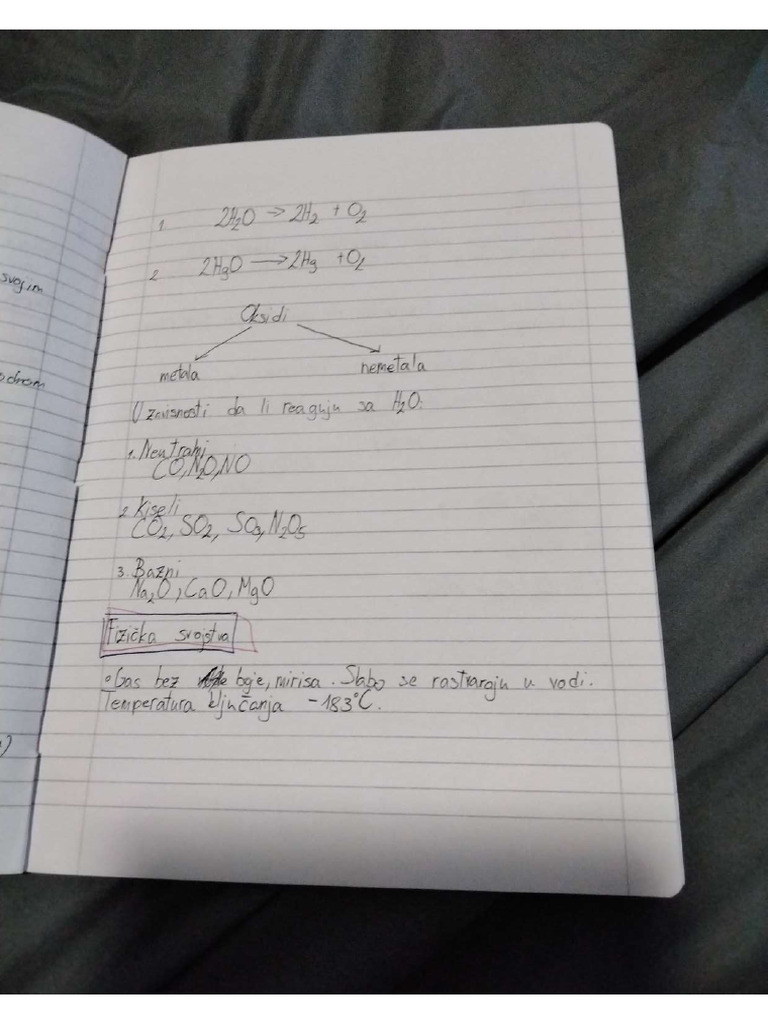 svojim
odnom
1. 2H₂O → 2H₂ + O₂
2. 2HgO → 2Hg + O₂
Oksidi
metala nemetala
U zavisnosti da li reaguju sa H₂O:
1. Neutralni
CO, N₂O, NO
2. Kiseli
CO₂, SO₂, SO₃, N₂O₅
3. Bazni
Na₂O, CaO, MgO
Fizička svojstva
• Gas bez boje, mirisa. Slabo se rastvaraju u vodi.
Temperatura ključanja -183°C.